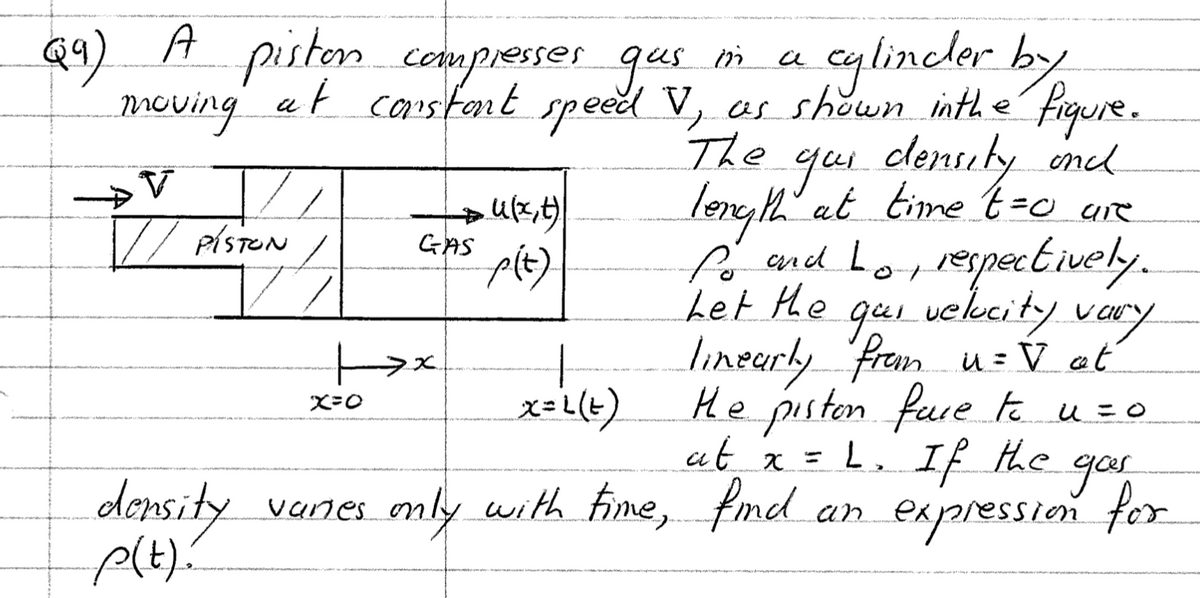 Q9) A piston compresses gas in a cylinder by
moving at constant speed V, as shown in the figure.
The gas density and
length at time t=0 are
ρ₀ and L₀, respectively.
Let the gas velocity vary
linearly from u = V at
the piston face to u = 0
at x = L. If the gas
density varies only with time, find an expression for
ρ(t).
V
PISTON
GAS
u(x,t)
ρ(t)
x
x=0
x=L(t)